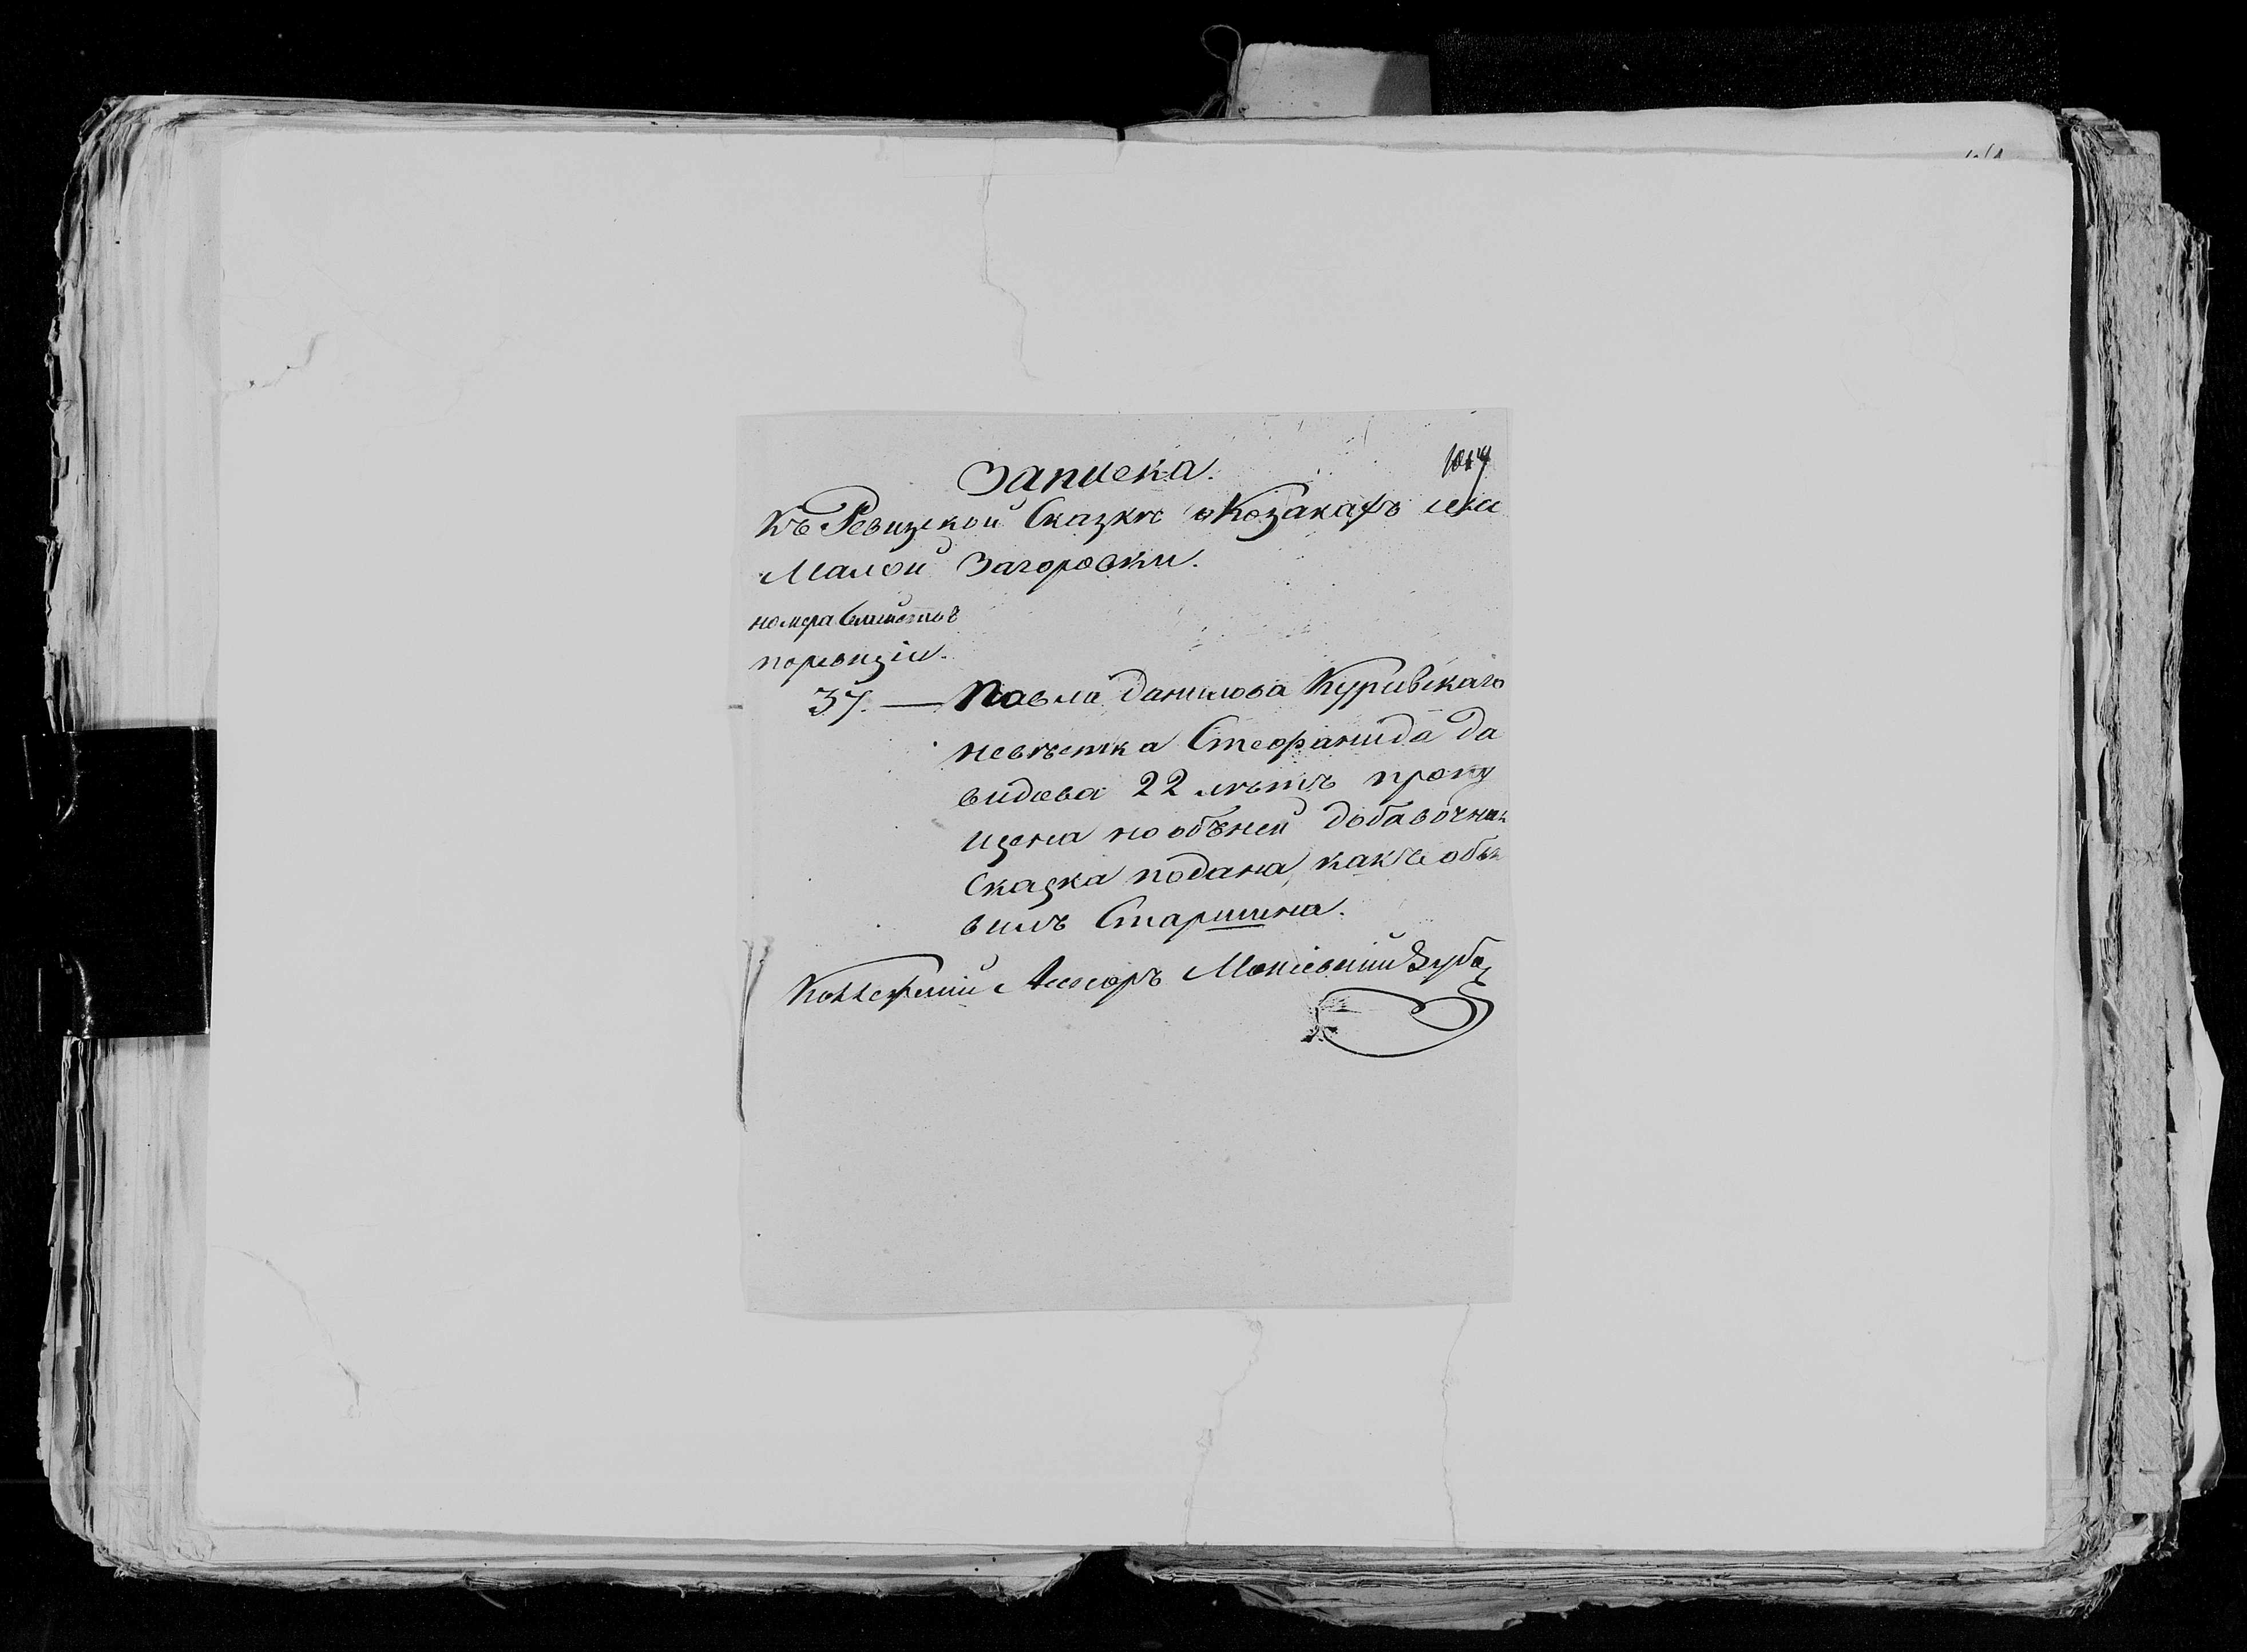 Записка.
Къ Ревизской Сказке о Козакахъ села
Малой Загоровки.
номера Семействъ
поревизіи.
37. — Павла Данилова Куривскаго
невѣстка Стефанида Да
видова 22 лѣтъ пропу
щена но объней добавочная
Сказка подана, какъ объя
вилъ Старшина.
Коллежский Ассесоръ